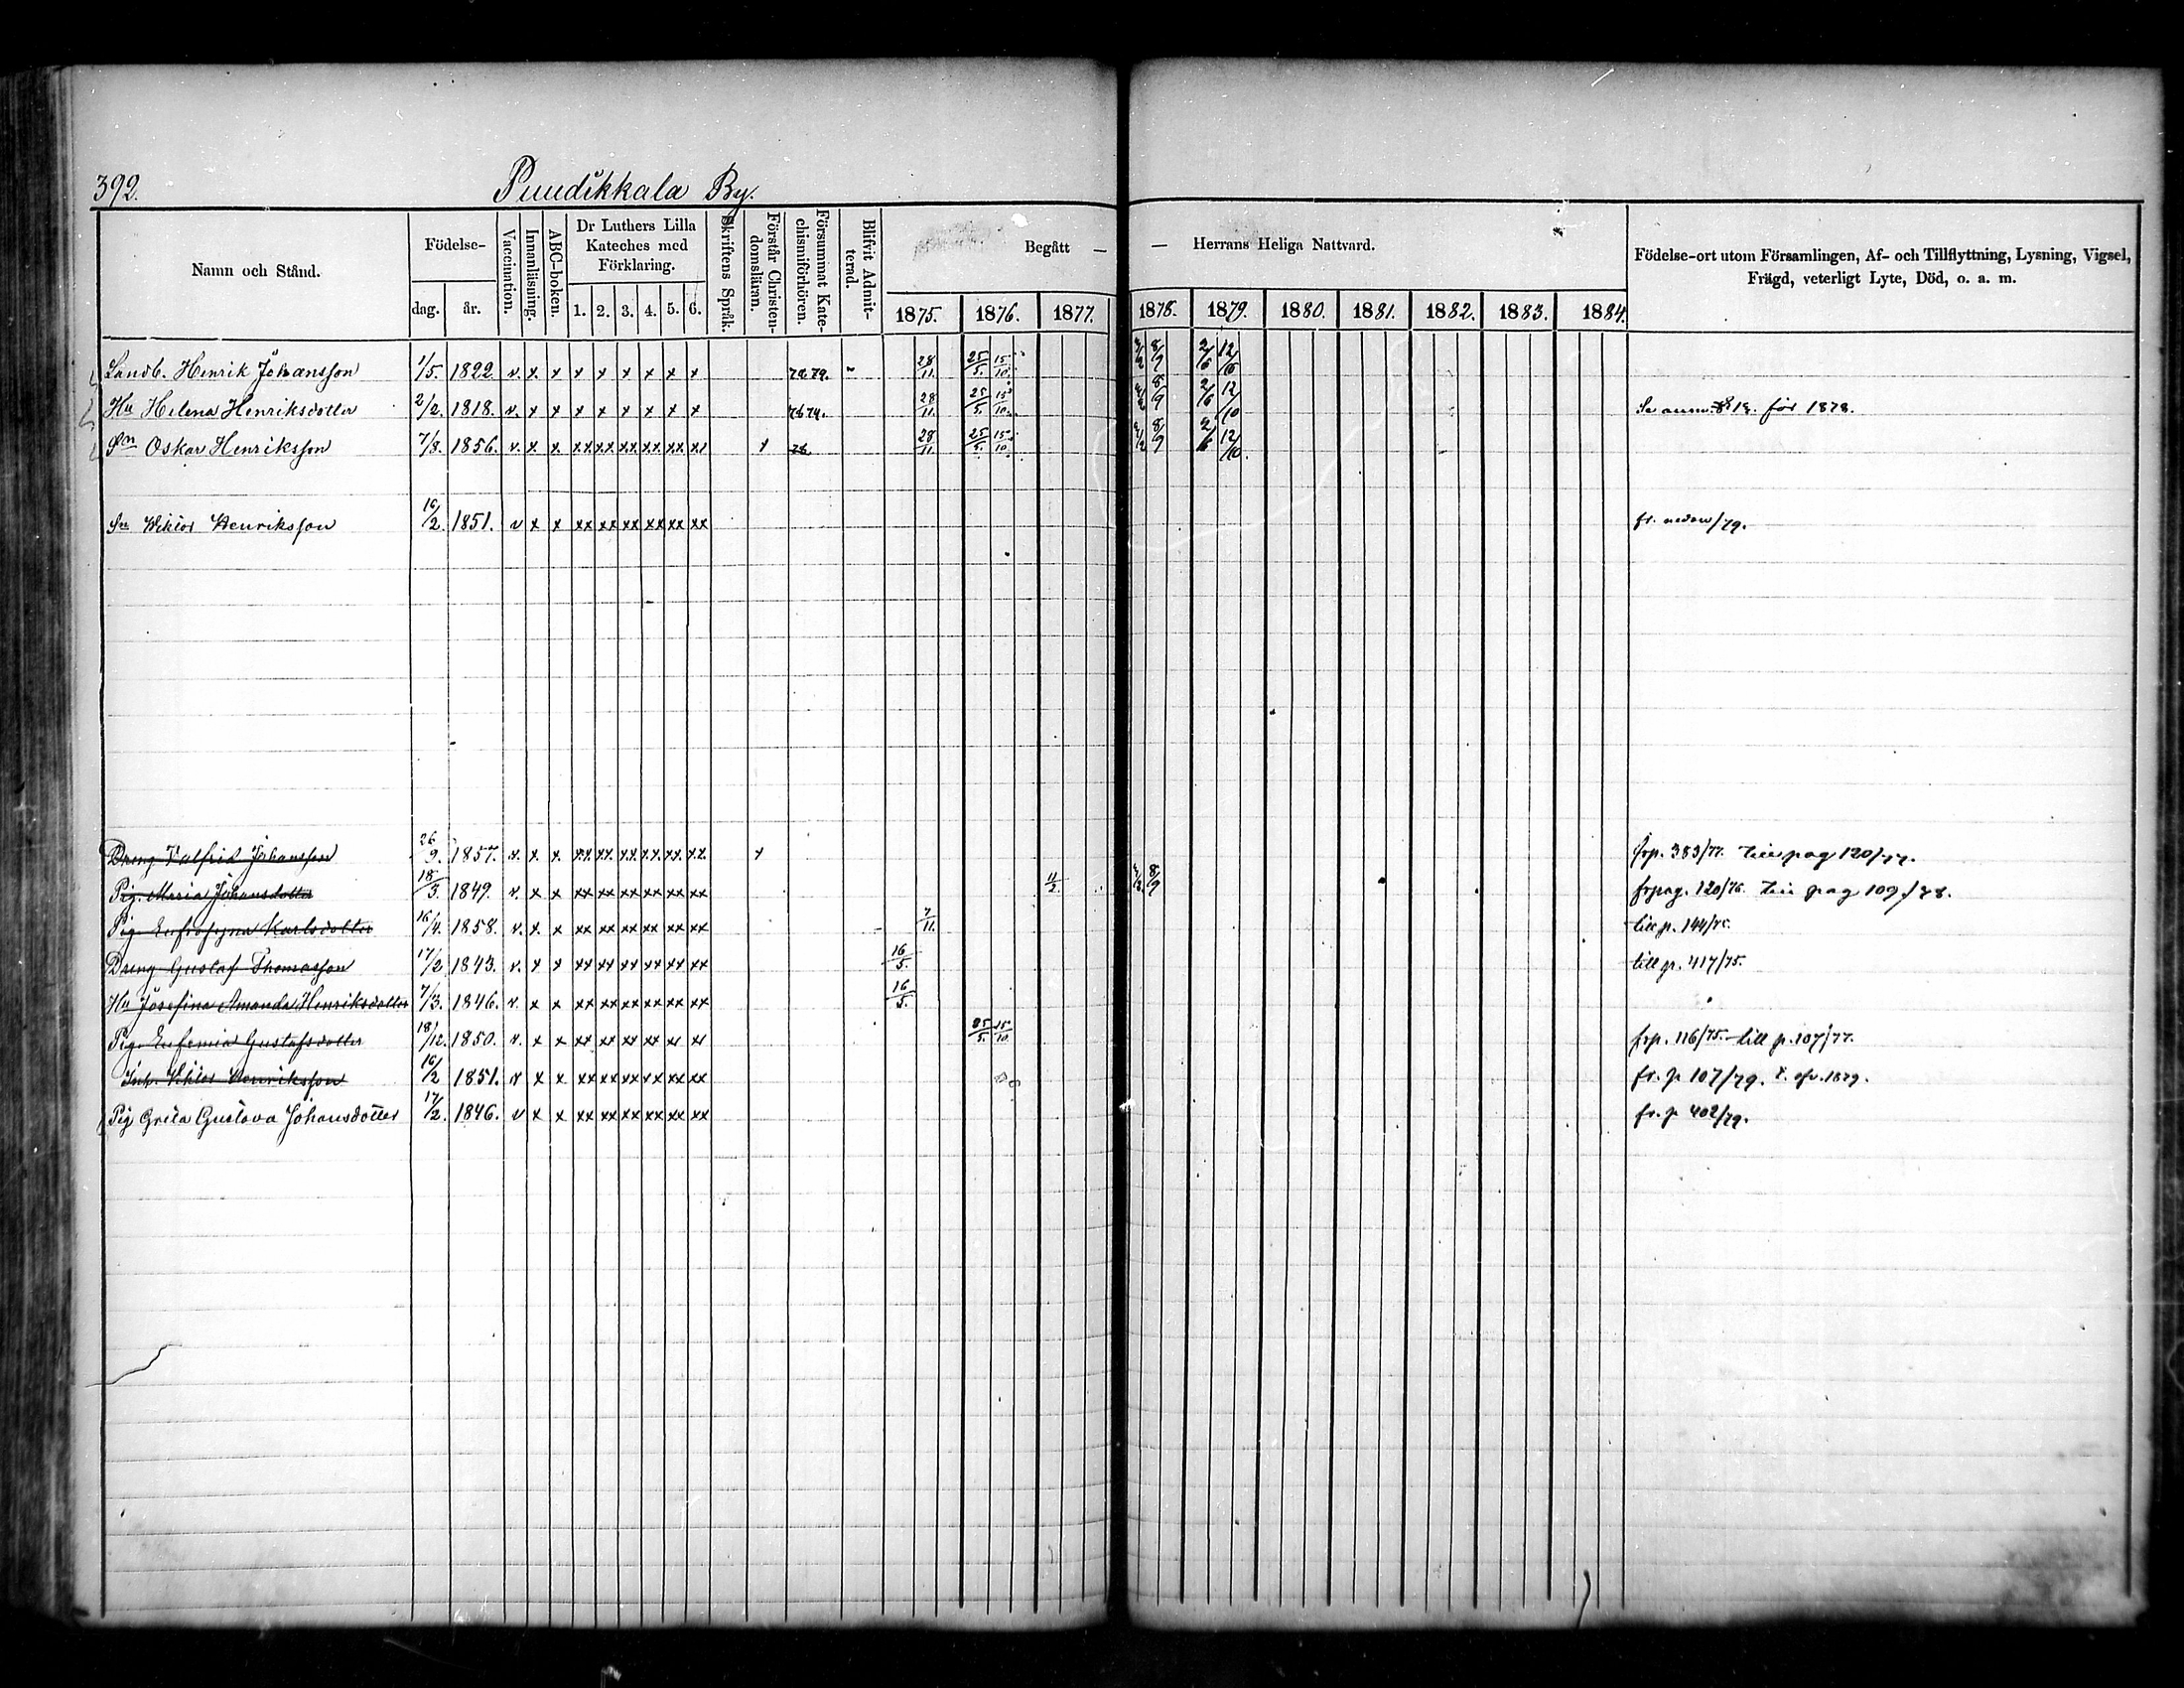 392. Puudikkala By.
Namn och Stånd. Födelse- dag. år. Vaccination. Innanläsning. ABC-boken. Dr Luthers Lilla Kateches med Förklaring. 1. 2. 3. 4. 5. 6. Skriftens Språk. Förstår Christendomsläran. Försummat Katechismiförhören. Blifvit Admitterad. Begått — — Herrans Heliga Nattvard. 1875. 1876. 1877. 1878. 1879. 1880. 1881. 1882. 1883. 1884. Födelse-ort utom Församlingen, Af- och Tillflyttning, Lysning, Vigsel, Frägd, veterligt Lyte, Död, o. a. m.
Landb. Henrik Johansson 1/5. 1822. v. x x x x x x x x 28/11. 25/5. 15/10. 8/9 2/6 12/10
Hu Helena Henriksdotter 2/2. 1818. v. x x x x x x x x 28/11. 25/5. 15/10. 8/9 2/6 12/10 för 1878.
Sn Oskar Henriksson 7/8. 1856. v. x x xx xx xx xx xx xx x 28/11. 25/5. 15/10. 8/9 2/6 12/10.
Sn Viktor Henriksson 16/2. 1851. v x x xx xx xx xx xx xx fr. nedan/79.
Dreng Valfrid Johansson 26/9. 1857. v. x x. xx xx xx xx xx xx x frp. 383/77. till pag 120/77.
Pig. Maria Johansdotter 18/3. 1849. v. x x xx xx xx xx xx xx 11/2. 8/9 frpag. 120/76. till pag 109/78.
Pig. Eufrosyna Karlsdotter 16/4. 1858. v. x x xx xx xx xx xx xx 7/11. till p. 144/75.
Dreng Gustaf Thomasson 17/2 1843. v. x x xx xx xx xx xx xx 16/5. till p. 417/75.
Hu Josefina Amanda Henriksdotter 7/3. 1846. v. x x xx xx xx xx xx xx 16/5.
Pig. Eufemia Gustafsdotter 18/12. 1850. v. x x xx xx xx xx xx xx 25/5. 15/10. frp. 116/75. till p. 107/77.
Inh. Viktor Henriksson 16/2 1851. v x x xx xx xx xx xx xx fr. p 107/79. t. ofv. 1879.
Pig Greta Gustava Johansdotter 17/2. 1846. v x x xx xx xx xx xx xx fr. p 402/79.